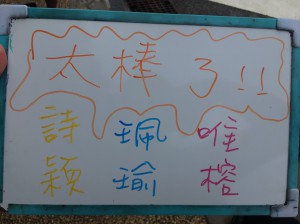 太棒了!!
詩 珮 唯
穎 瑜 榕